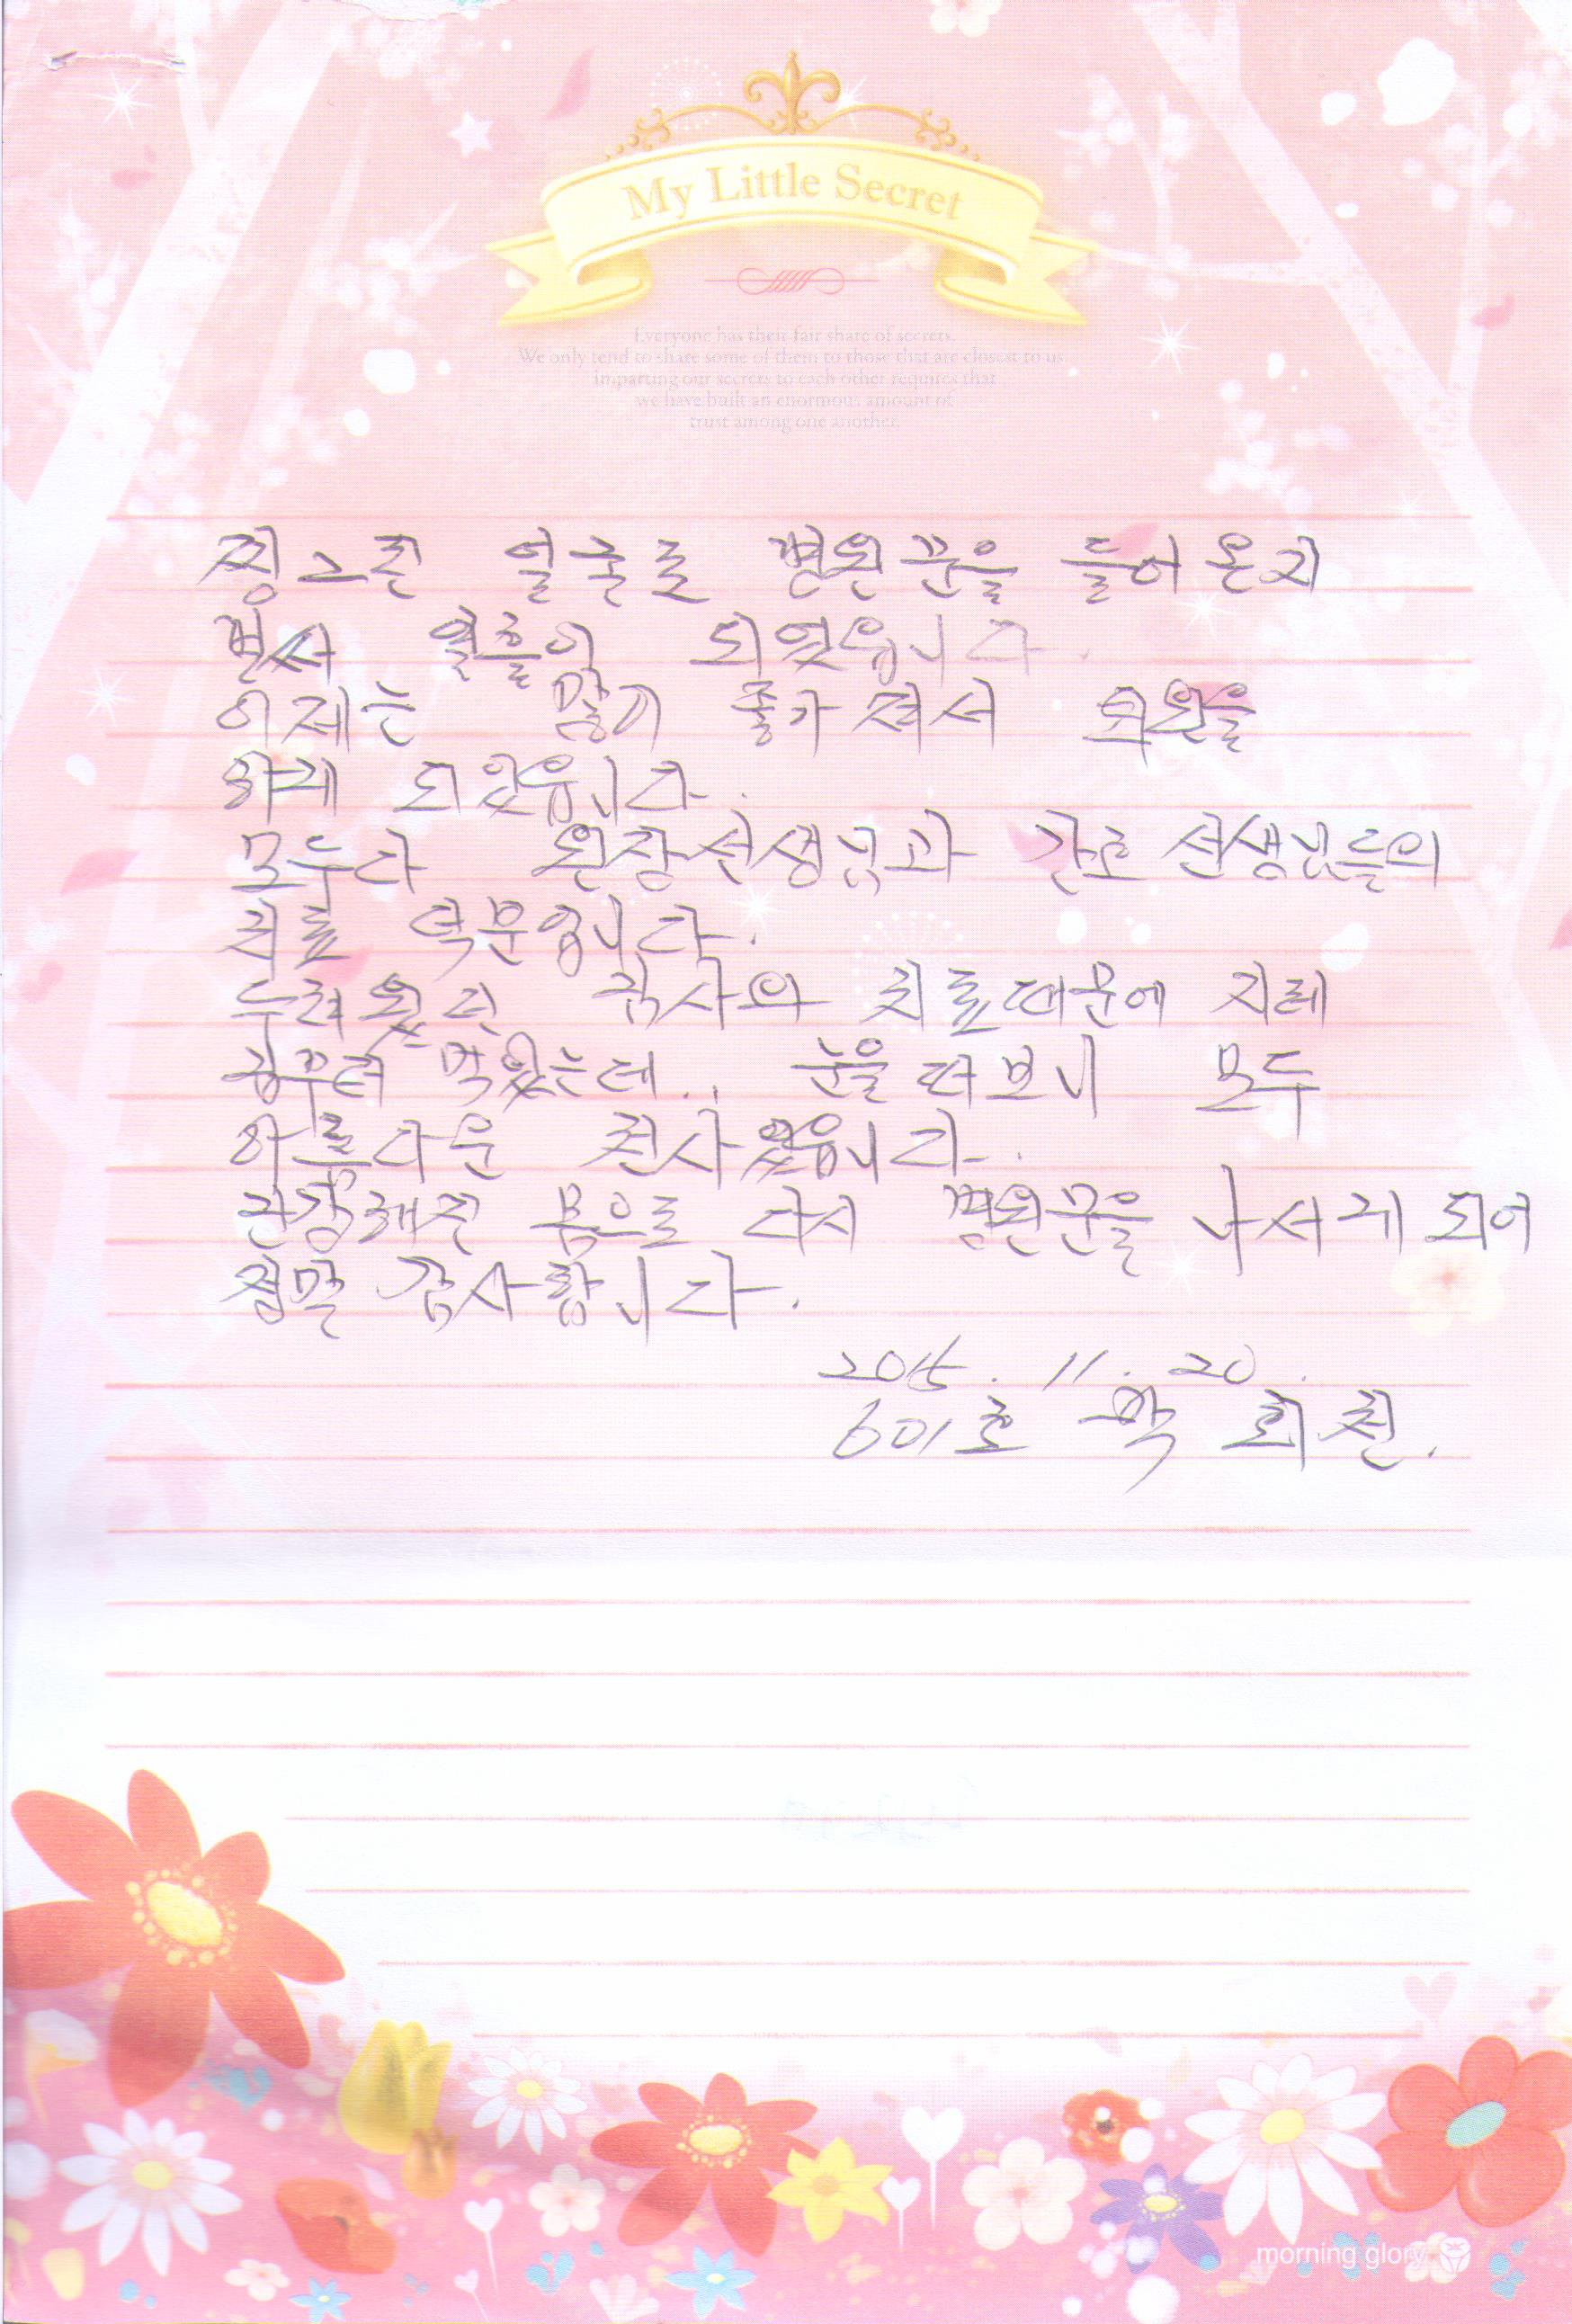 My Little Secret
Everyone has their fair share of secrets.
We only tend to share some of them to those that are closest to us,
imparting our secrets to each other requires that
we have built an enormous amount of
trust among one another.
찡그린 얼굴로 병원문을 들어온지
벌써 열흘이 되었읍니다.
이제는 많이 좋아져서 퇴원을
하게 되었읍니다.
모두다 원장선생님과 간호선생님들의
치료 덕분입니다.
두려웠던 주사와 치료때문에 지레
겁부터 먹었는데.. 눈을 떠보니 모두
아름다운 천사였읍니다.
건강해진 몸으로 다시 병원문을 나서게 되어
정말 감사합니다.
2015. 11. 20.
601호 박 희진.
morning glory